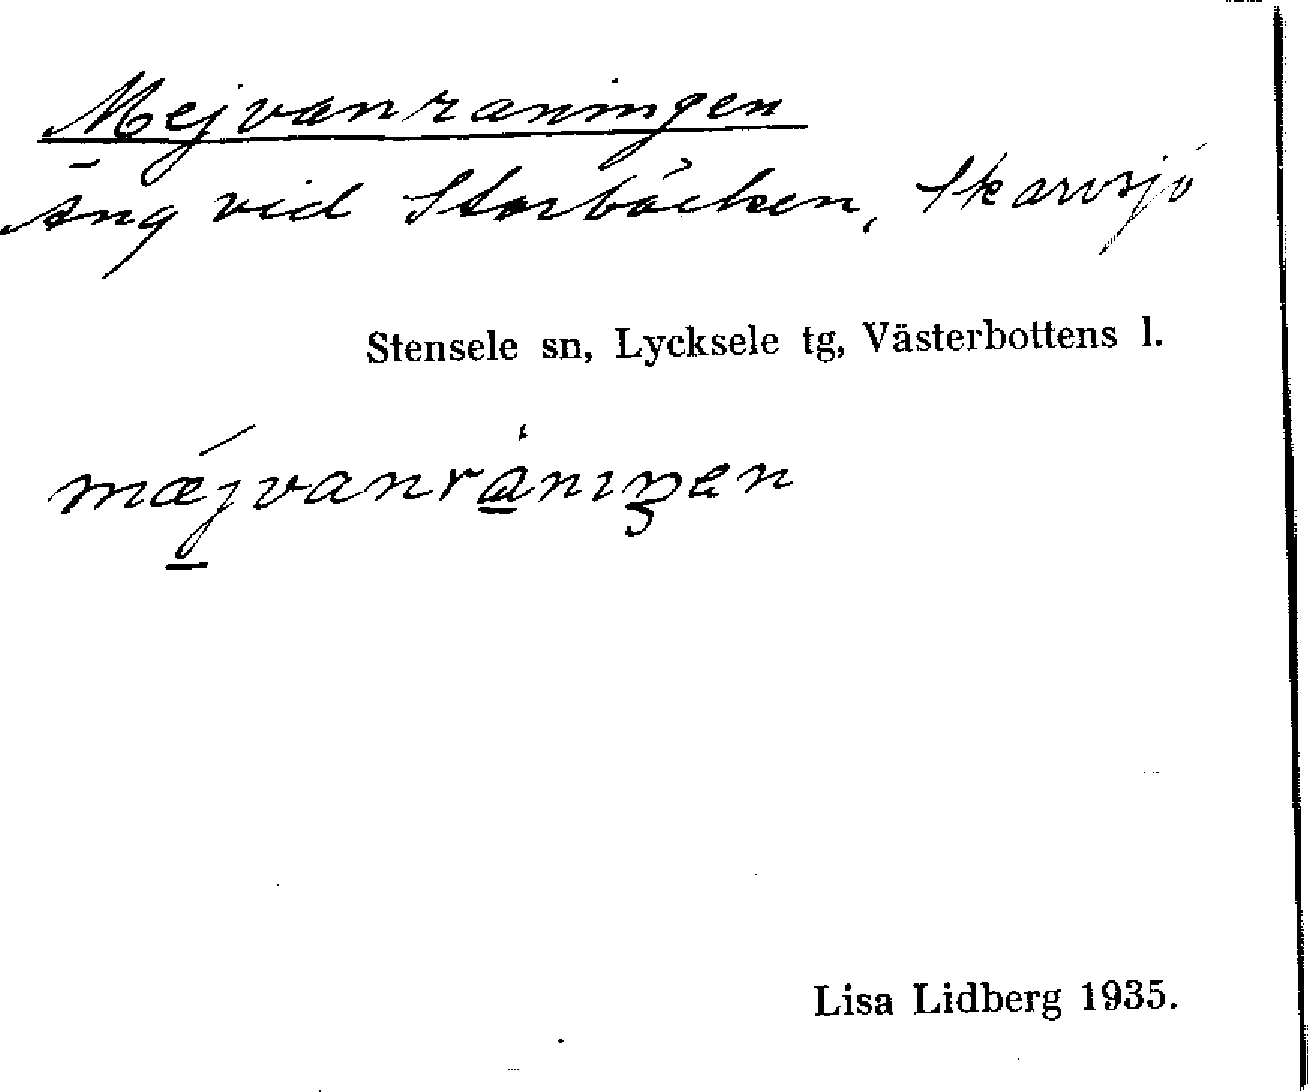 Mejvanraningen
Äng vid Storbäcken, Skarvsjö
Stensele sn, Lycksele tg, Västerbottens l.
mǽjvanrànıŋen
Lisa Lidberg 1935.